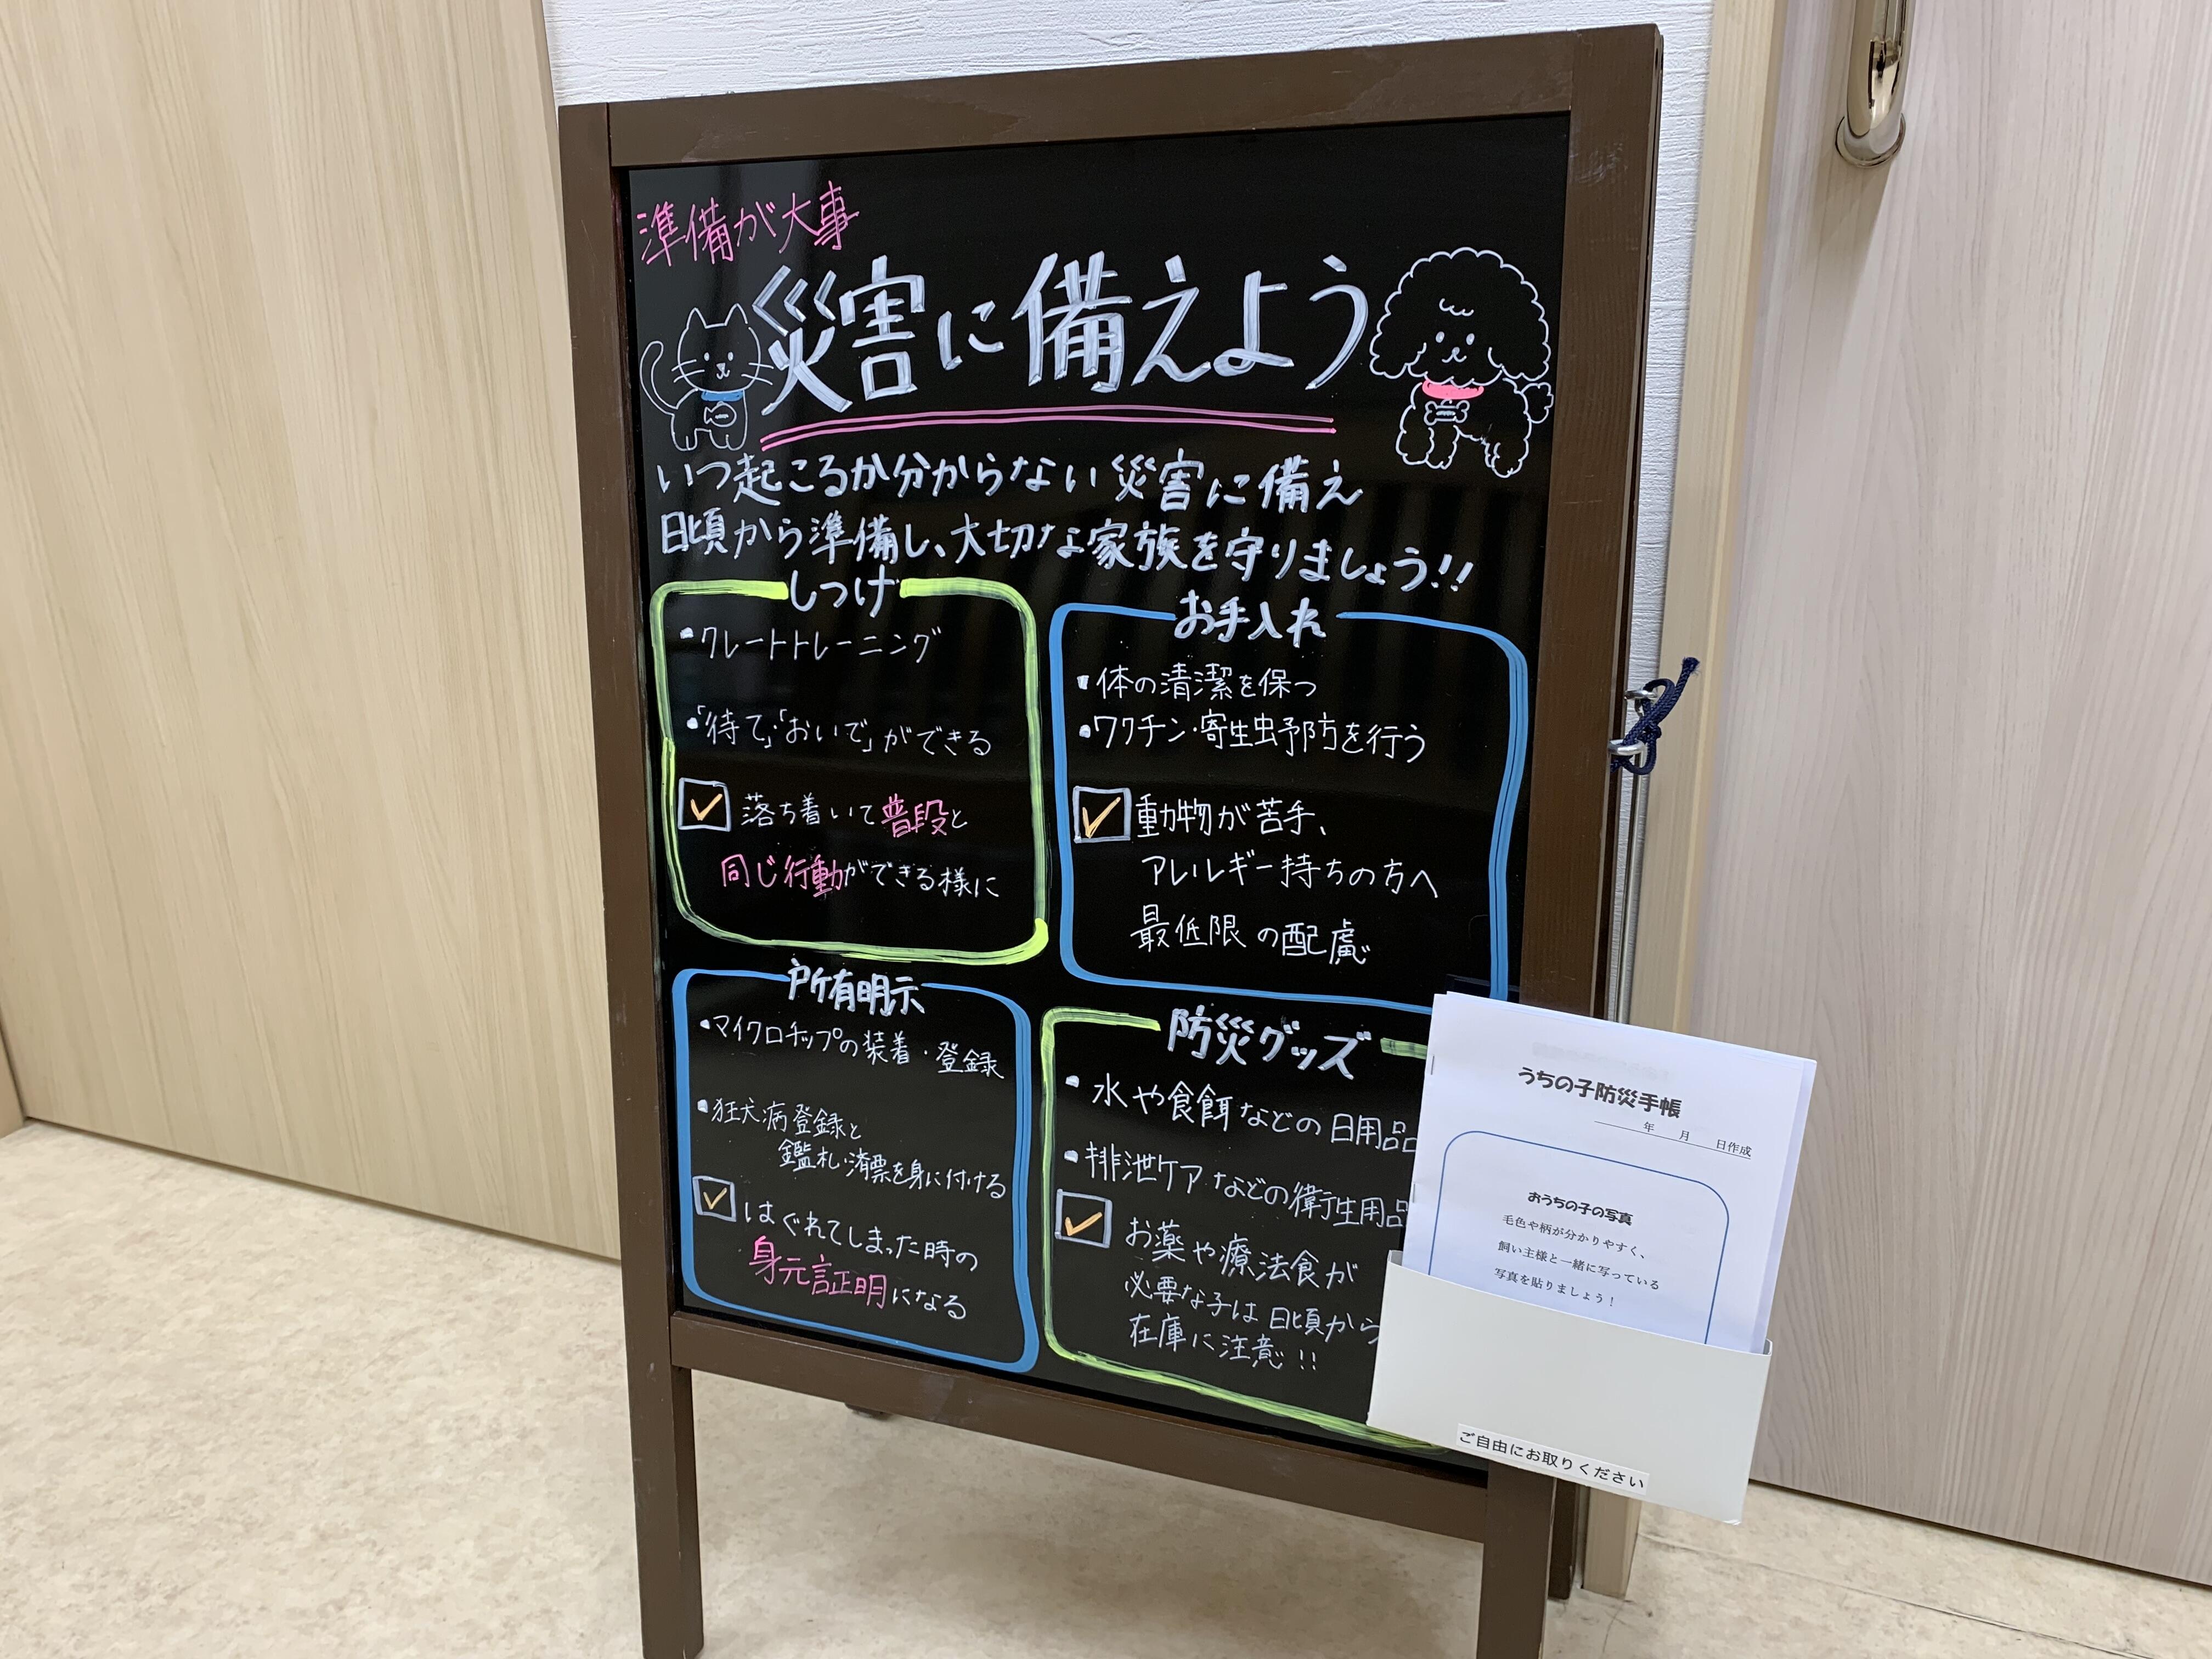 準備が大事
災害に備えよう
いつ起こるか分からない災害に備え
日頃から準備し、大切な家族を守りましょう!!
しつけ
・クレートトレーニング
・「待て」・「おいで」ができる
落ち着いて普段と
同じ行動ができる様に
お手入れ
・体の清潔を保つ
・ワクチン・寄生虫予防を行う
動物が苦手、
アレルギー持ちの方へ
最低限の配慮
所有明示
・マイクロチップの装着・登録
・狂犬病登録と
鑑札・済票を身に付ける
はぐれてしまった時の
身元証明になる
防災グッズ
・水や食餌などの日用品
・排泄ケアなどの衛生用品
お薬や療法食が
必要な子は日頃から
在庫に注意!!
うちの子防災手帳
年 月 日作成
おうちの子の写真
毛色や柄が分かりやすく、
飼い主様と一緒に写っている
写真を貼りましょう！
ご自由にお取りください